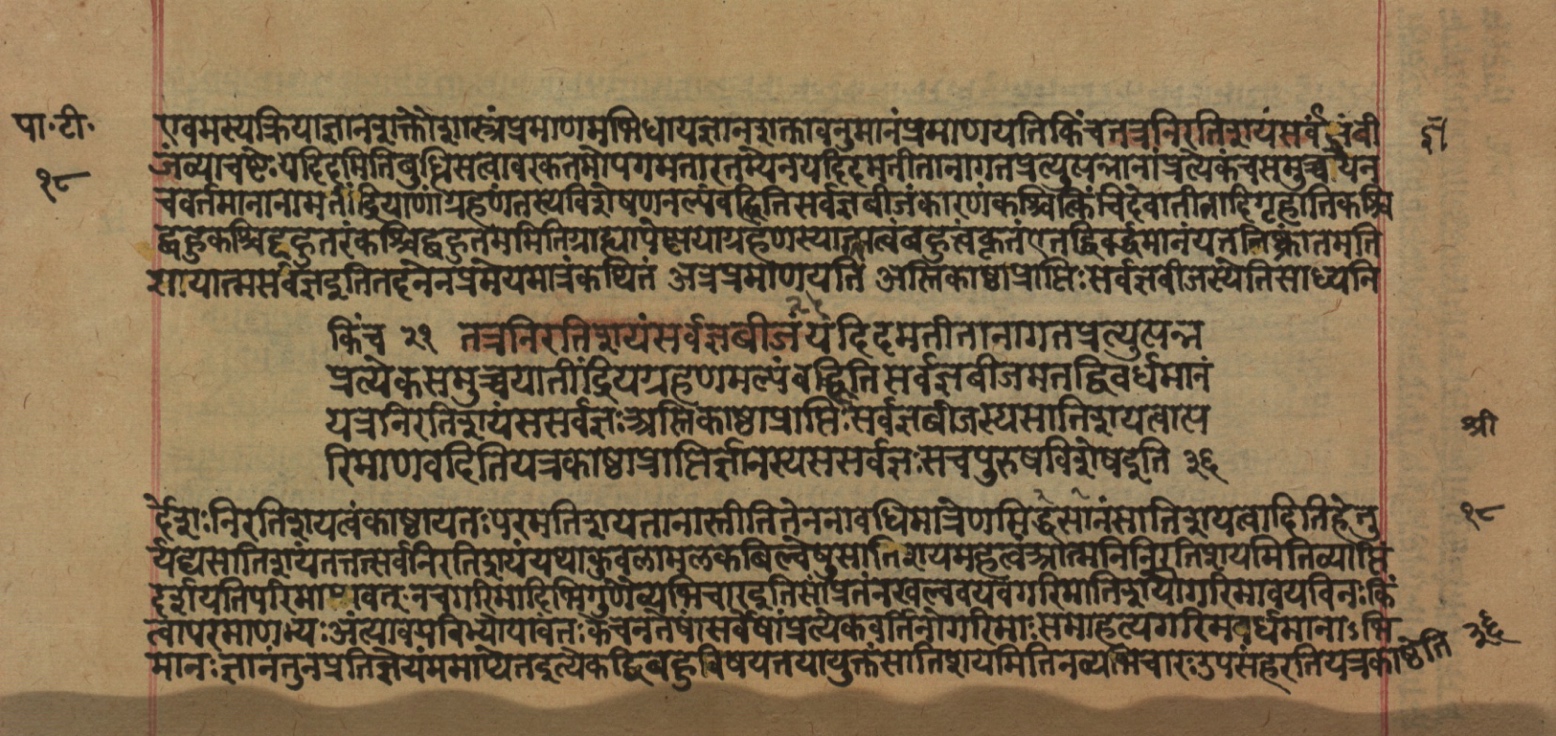 पा॰ टी॰
१८
एवमस्यक्रियाज्ञानशक्तौशास्त्रंप्रमाणमभिधायज्ञानशक्तावनुमानंप्रमाणयतिकिंचतत्रनिरतिशयंसर्वज्ञबी
जंव्याचष्टेःयदिदमितिबुद्धिसत्वावरकतमोपगमतारतम्येनयदिदमतीतानागतप्रत्युत्पन्नानांप्रत्येकंचसमुच्चयेन
चवर्तमानानामतींद्रियाणांग्रहणंतस्यविशेषणनल्पंबह्वितिसर्वज्ञबीजंकारणंकश्चित्किंचिदेवातीतादिगृह्णातिकश्चि
द्बहुकश्चिद्बहुतरंकश्चिद्बहुतममितिग्राह्यापेक्षयाग्रहणस्याल्पत्वंबहुत्वंकृतंएतद्धिवर्द्धमानंयत्रनिष्क्रांतमति
शयात्मसर्वज्ञइतितदनेनप्रमेयमात्रंकथितं अत्रप्रमाणयति अस्तिकाष्ठाप्राप्तिःसर्वज्ञबीजस्येतिसाध्यनि
किंच २१ तत्रनिरतिशयंसर्वज्ञबीजं २५ यदिदमतीतानागतप्रत्युत्पन्न
प्रत्येकसमुच्चयातींद्रियग्रहणमल्पंबह्वितिसर्वज्ञबीजमेतद्विवर्धमानं
यत्रनिरतिशयंससर्वज्ञःअस्तिकाष्ठाप्राप्तिःसर्वज्ञबीजस्यसातिशयत्वात्प
रिमाणवदितियत्रकाष्ठाप्राप्तिर्ज्ञानस्यससर्वज्ञःसचपुरुषविशेषइति ३६
र्देशःनिरतिशयत्वंकाष्ठायतःपरमतिशयतानास्तीतितेननावधिमात्रेणसिद्धसानंसातिशयत्वादितिहेतु
र्यद्यत्सातिशयंतत्तत्सर्वनिरतिशयंयथाकुवलामलकबिल्वेषुसातिशयमहत्वंआत्मनिनिरतिशयमितिव्याप्तिं
दर्शयतिपरिमाणवत्ःनचगरिमादिभिर्गुणैर्व्यभिचारइतिसांप्रतंनखल्ववयवगरिमातिशयीगरिमावयविनःकिं
त्वापरमाणुभ्यःअंत्यावयविभ्योयावंतःकेचनतेषांसर्वेषांप्रत्येकवर्तिनोगरिमाःसमाहृत्यगरिमवर्धमानाऽभि
मानःज्ञानंतुनप्रतिज्ञेयंसमाप्यतइत्येकद्विबहुविषयतयायुक्तंसातिशयमितिनव्यभिचारःउपसंहरतियत्रकाष्ठेति
श्री
१८
३६